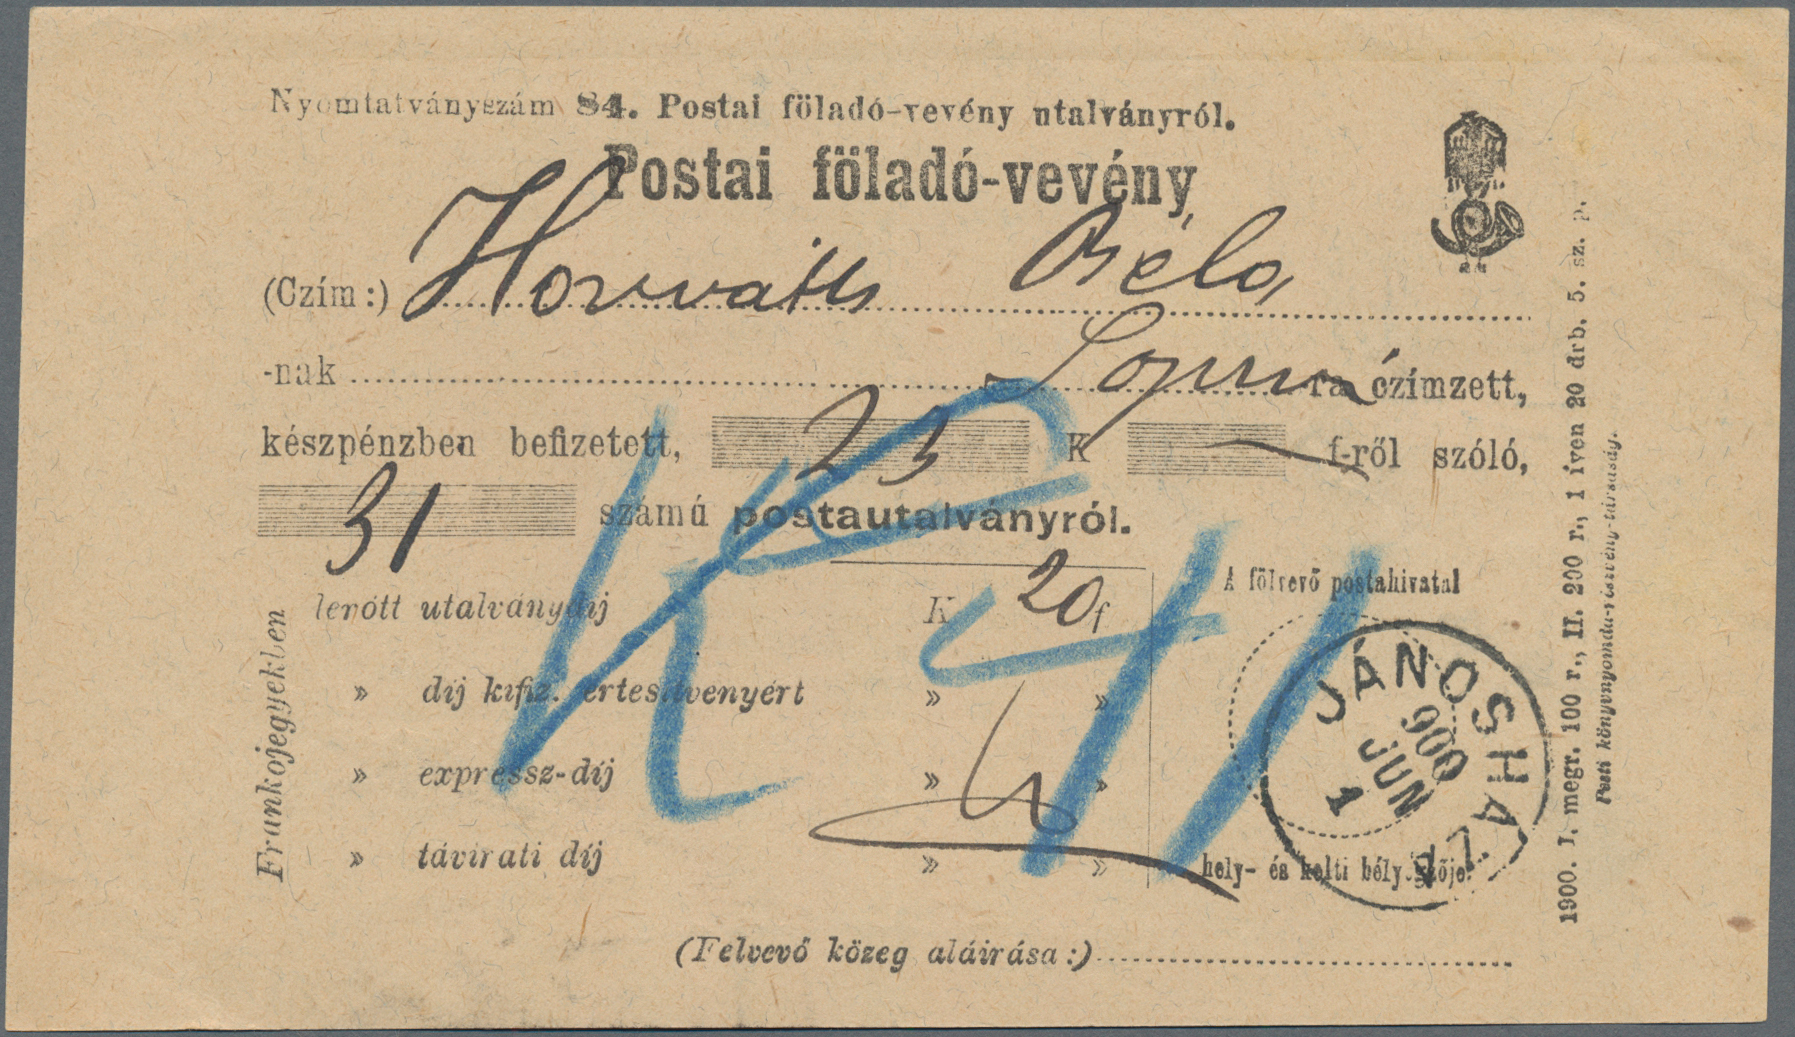 Nyomtatványszám 84. Postai föladó-vevény utalványról.
Postai föladó-vevény
(Czím:) Horváth Béla
-nak Sopron ra czímzett,
készpénzben befizetett, 23 K — f-ről szóló,
31 számú postautalványról.
Frankojegyekben
lerótt utalványdíj K 20 f
» díj kifiz. értesítvenyért » »
» expressz-díj » »
» távirati díj » »
A fölvevő postahivatal
JÁNOSHÁZA
900
JUN
1
hely- és kelti bélyegzője.
(Felvevő közeg aláírása:)
1900. I. megr. 100 r., II. 200 r., 1 íven 20 drb. 5. sz. p.
Pesti könyvnyomda-részvény-társaság.